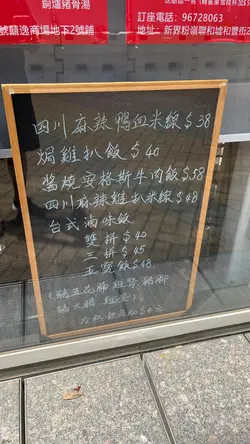 銅爐豬骨湯
號囍逸商場地下2號鋪
訂座電話：96728063
地址：新界粉嶺聯和墟和豐街2
四川麻辣鴨血米線$38
焗雞扒飯$40
醬燒安格斯牛肉飯$58
四川麻辣雞扒米線$48
台式滷味飯
雙拼$40
三拼$45
五寶飯$48